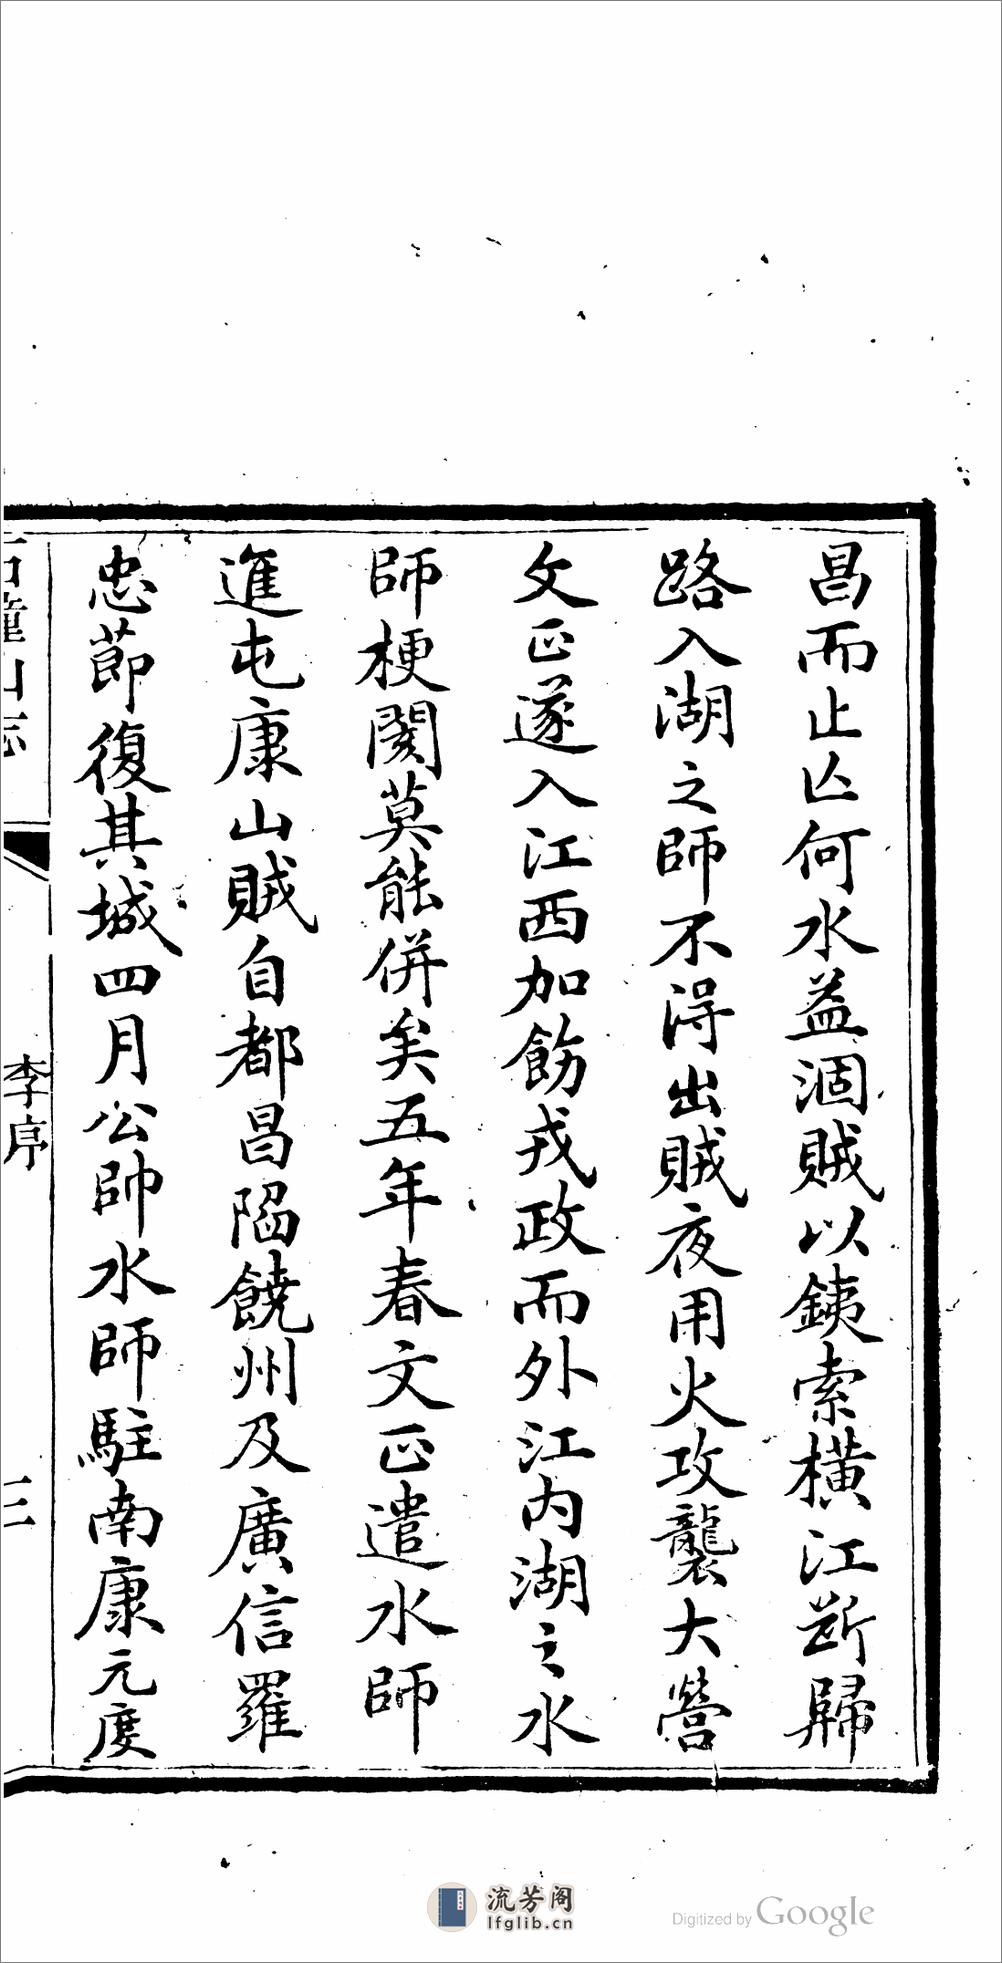 昌而止亾何水益涸賊以銕索橫江斷歸
路入湖之師不得出賊夜用火攻襲大營
文正遂入江西加飭戎政而外江内湖之水
師梗閡莫能併矣五年春文正遣水師
進屯康山賊自都昌陷饒州及廣信羅
忠節復其城四月公帥水師駐南康元度
石鐘山志
李序
三
流芳阁
lfglib.cn
Digitized by Google